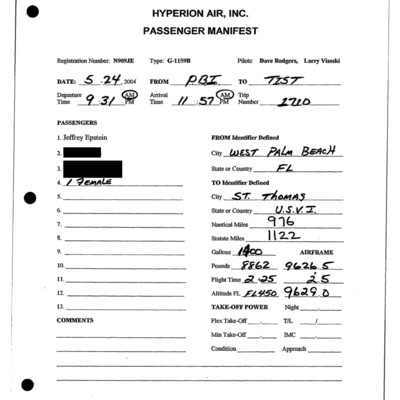 HYPERION AIR, INC.
PASSENGER MANIFEST
Registration Number: N909JE Type: G-1159B Pilots: Dave Rodgers, Larry Visoski
DATE: 5.24, 2004 FROM PBI TO TIST
Departure Time 9:31 AM Arrival Time 11:57 AM Trip Number 1710
PASSENGERS
1. Jeffrey Epstein FROM Identifier Defined
2. City WEST PALM BEACH
3. State or Country FL
4. 1 FEMALE TO Identifier Defined
5. City ST. THOMAS
6. State or Country U.S.V.I.
7. Nautical Miles 976
8. Statute Miles 1122
9. Gallons 1400 AIRFRAME
10. Pounds 8862 9626.5
11. Flight Time 2.25 2.5
12. Altitude FL FL450 9629.0
13. TAKE-OFF POWER Night
COMMENTS Flex Take-Off T/L /
Min Take-Off IMC
Condition Approach